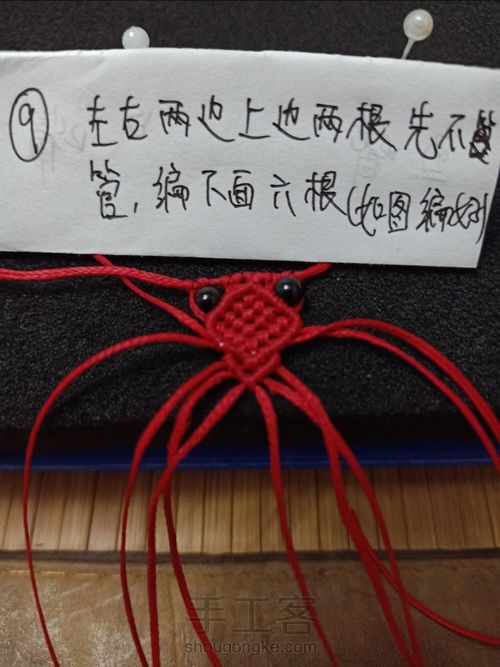 ⑨ 左右两边上边两根先不
管,编下面六根(如图编好)
手工客
shougongke.com